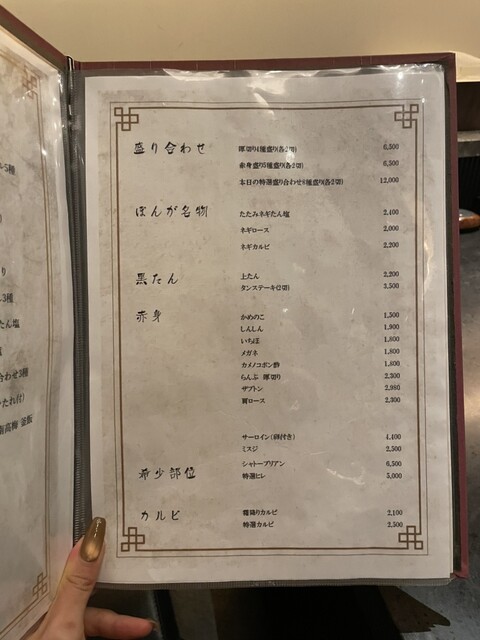 盛り合わせ
厚切り4種盛り(各2切) 6,500
赤身盛り5種盛り(各2切) 6,500
本日の特選盛り合わせ8種盛り(各2切) 12,000
ぽんが名物
たたみネギたん塩 2,400
ネギロース 2,000
ネギカルビ 2,200
黒たん
上たん 2,200
タンステーキ(2切) 3,500
赤身
かめのこ 1,500
しんしん 1,900
いちぼ 1,800
メガネ 1,800
カメノコポン酢 1,600
らんぷ 厚切り 2,300
ザブトン 2,980
肩ロース 2,300
サーロイン(卵付き) 4,400
ミスジ 2,500
希少部位
シャトーブリアン 6,500
特選ヒレ 5,000
カルビ
霜降りカルビ 2,100
特選カルビ 2,500
5種
り
3種
たん塩
合わせ3種
たれ付)
南高梅 釜飯